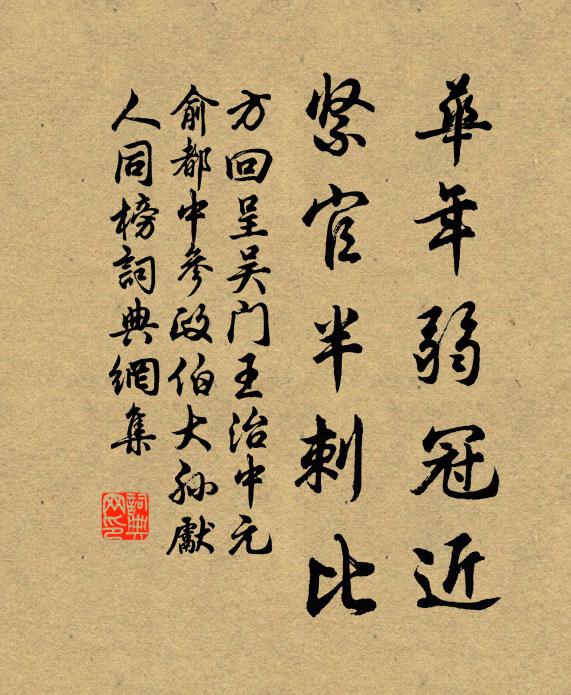 華年弱冠近
緊官半刺比
方回呈吴门王治中元
俞都中參政伯大孙獻
人同榜詞典網集
詞典網印